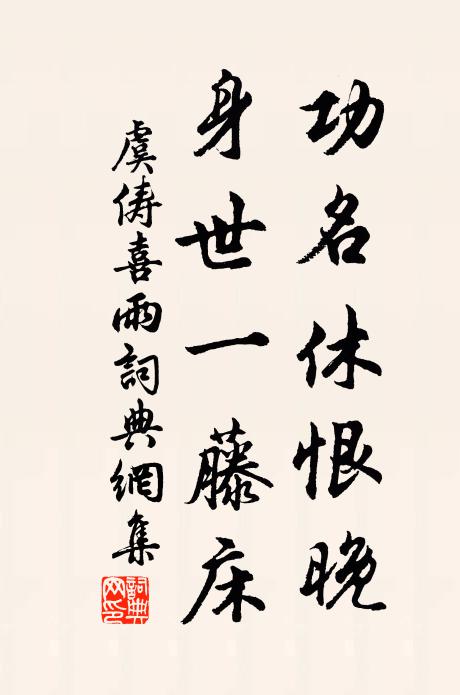 功名休恨晚
身世一藤床
虞俦喜雨詞典網集
詞典网印